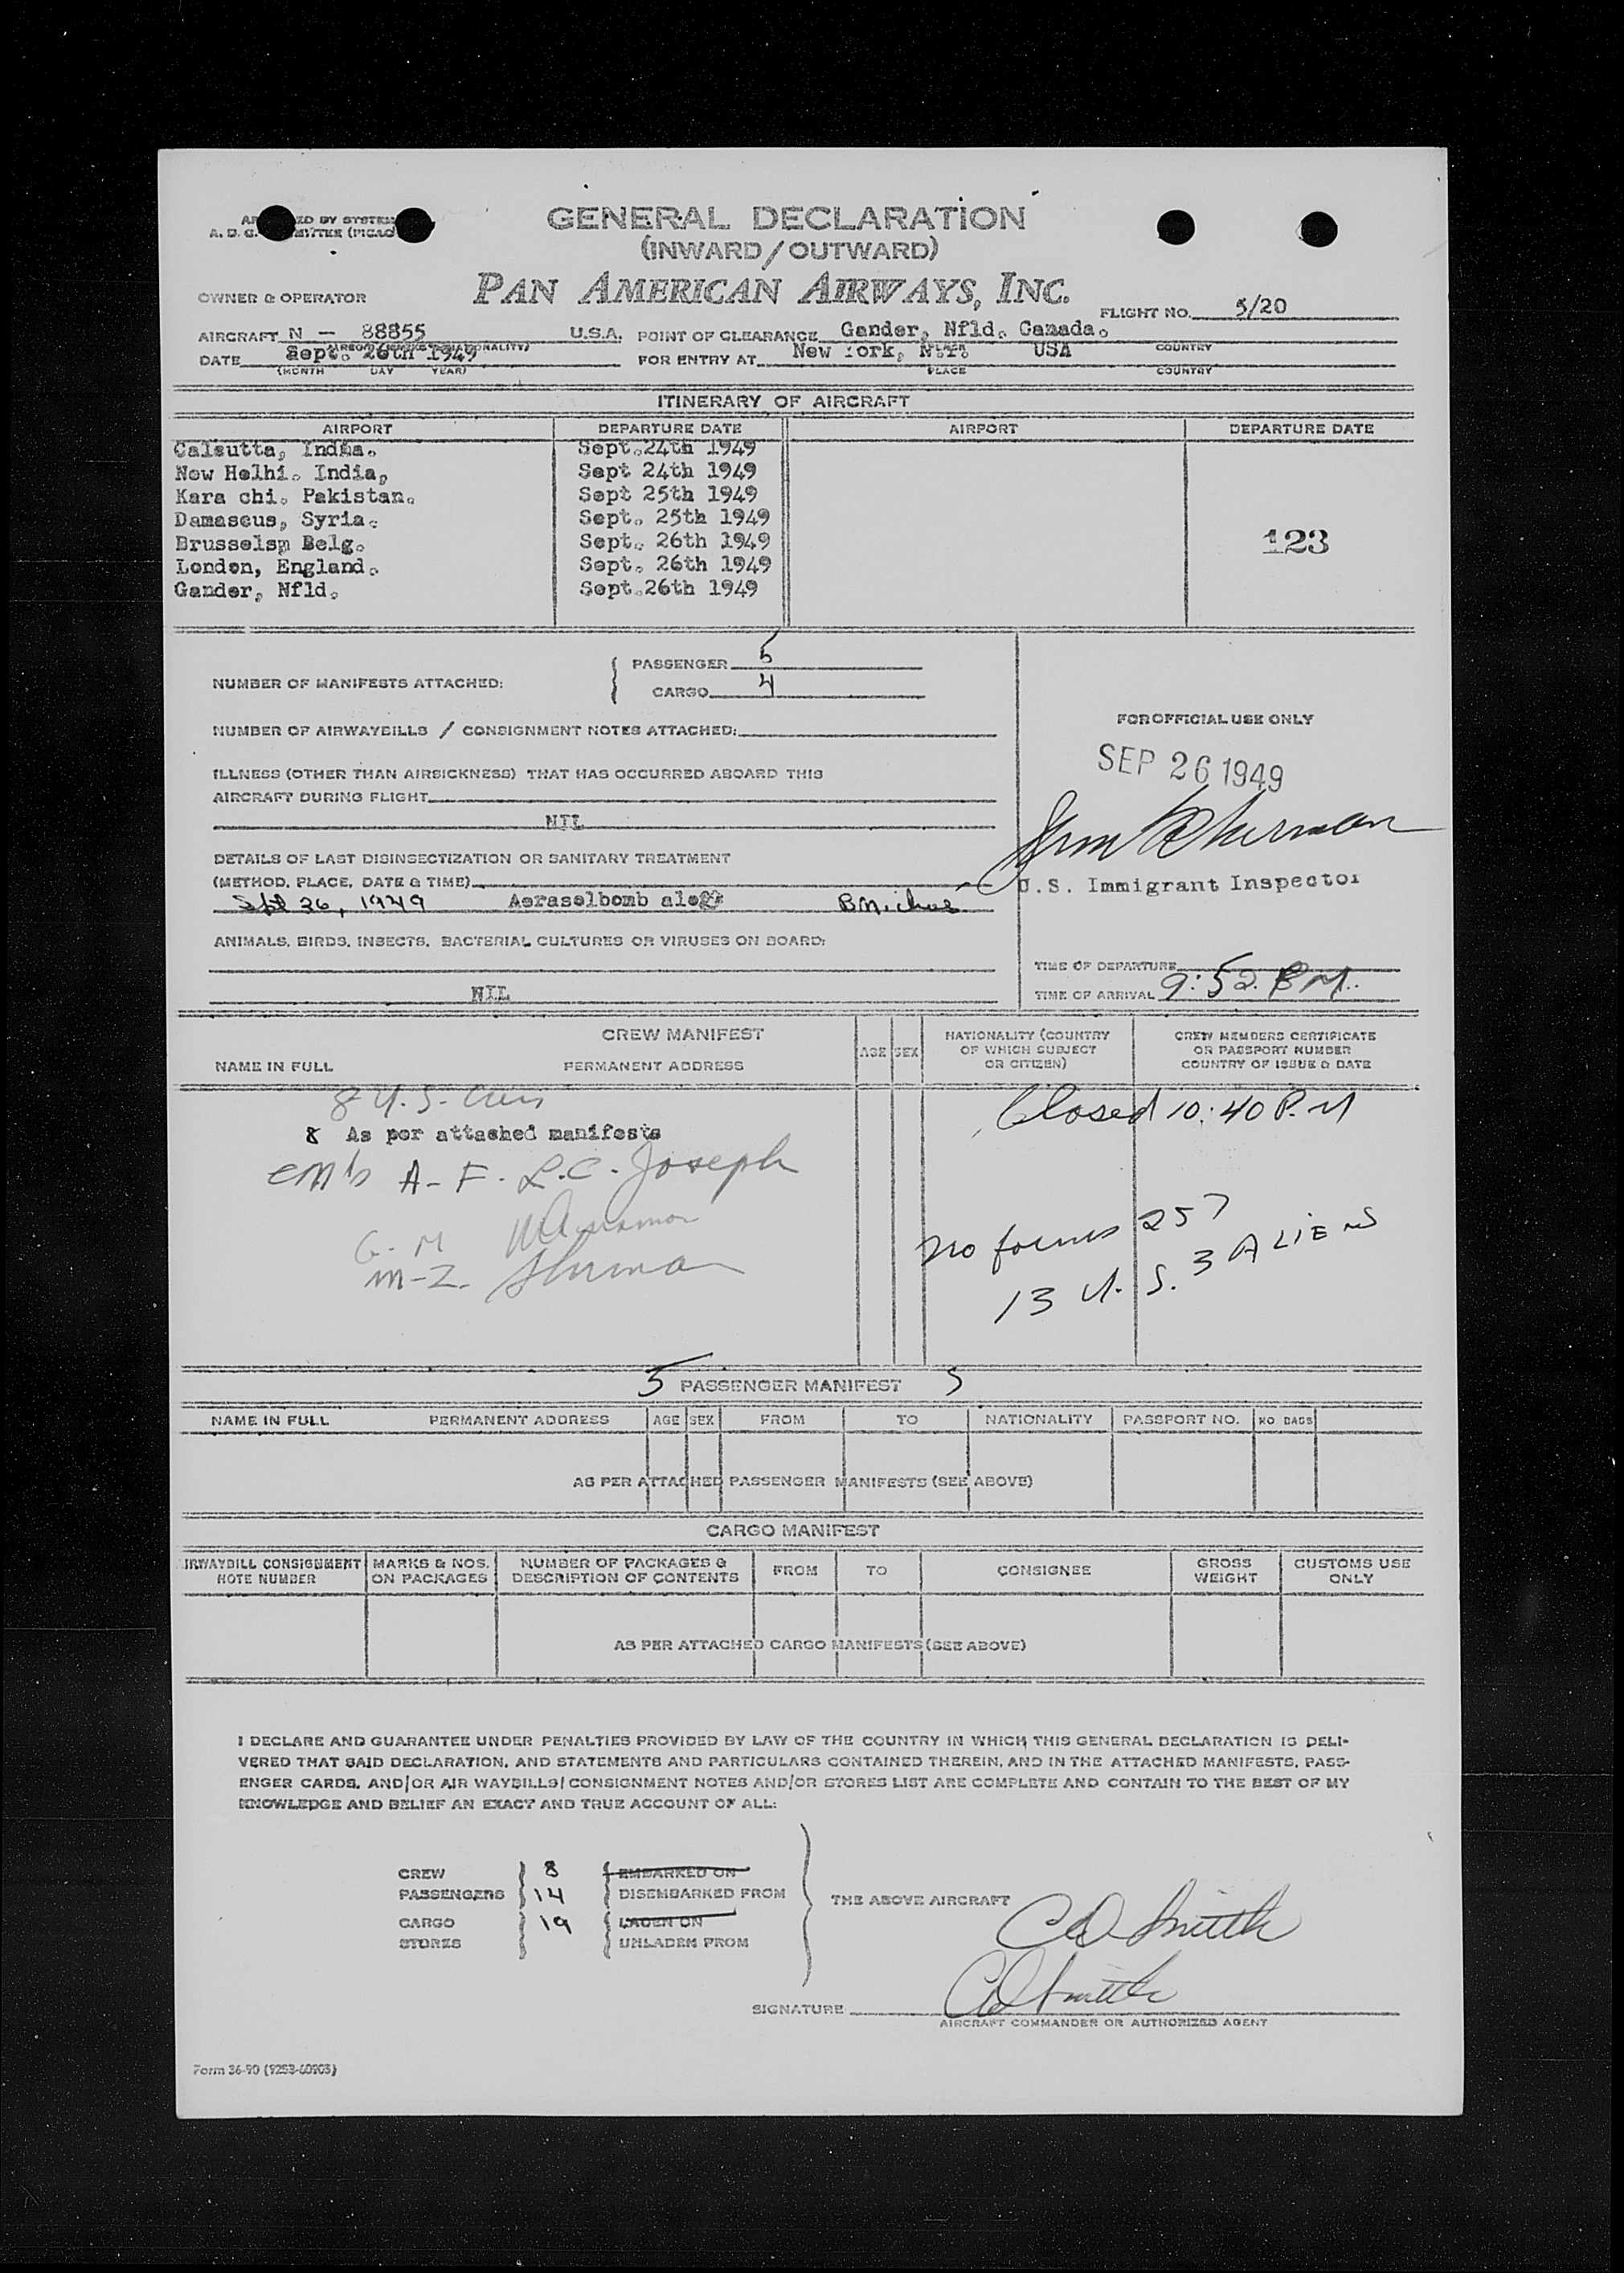 GENERAL DECLARATION
(INWARD/OUTWARD)
PAN AMERICAN AIRWAYS, INC.
OWNER & OPERATOR
FLIGHT NO. 5/20
AIRCRAFT N - 88855 U.S.A. POINT OF CLEARANCE Gander, Nfld. Canada.
DATE Sept. 26th 1949 FOR ENTRY AT New York, N.Y. USA
(MONTH DAY YEAR) PLACE COUNTRY
ITINERARY OF AIRCRAFT
AIRPORT DEPARTURE DATE AIRPORT DEPARTURE DATE
Calcutta, India. Sept.24th 1949
New Helhi. India, Sept 24th 1949
Kara chi. Pakistan. Sept 25th 1949
Damascus, Syria. Sept. 25th 1949
Brusselsm Belg. Sept. 26th 1949
123
London, England. Sept. 26th 1949
Gander, Nfld. Sept.26th 1949
NUMBER OF MANIFESTS ATTACHED:
PASSENGER 5
CARGO 4
NUMBER OF AIRWAYBILLS / CONSIGNMENT NOTES ATTACHED:
ILLNESS (OTHER THAN AIRSICKNESS) THAT HAS OCCURRED ABOARD THIS
AIRCRAFT DURING FLIGHT
NIL
DETAILS OF LAST DISINSECTIZATION OR SANITARY TREATMENT
(METHOD, PLACE, DATE & TIME)
Sept 26, 1949 Aerasolbomb
ANIMALS, BIRDS, INSECTS, BACTERIAL CULTURES OR VIRUSES ON BOARD:
NIL
FOR OFFICIAL USE ONLY
SEP 26 1949
U.S. Immigrant Inspector
TIME OF DEPARTURE
TIME OF ARRIVAL 9:52 PM.
CREW MANIFEST
NAME IN FULL PERMANENT ADDRESS
AGE SEX
NATIONALITY (COUNTRY
OF WHICH SUBJECT
OR CITIZEN)
CREW MEMBERS CERTIFICATE
OR PASSPORT NUMBER
COUNTRY OF ISSUE & DATE
8 U.S.
Closed 10:40 P.M
8 As per attached manifests
A-F. L.C. Joseph
G-M
M-Z. Sherman
No forms 257
13 U.S. 3 ALIENS
5 PASSENGER MANIFEST 5
NAME IN FULL PERMANENT ADDRESS AGE SEX FROM TO NATIONALITY PASSPORT NO. NO. BAGS
AS PER ATTACHED PASSENGER MANIFESTS (SEE ABOVE)
CARGO MANIFEST
IRWAYBILL CONSIGNMENT NOTE NUMBER
MARKS & NOS. ON PACKAGES
NUMBER OF PACKAGES & DESCRIPTION OF CONTENTS
FROM TO CONSIGNEE
GROSS WEIGHT
CUSTOMS USE ONLY
AS PER ATTACHED CARGO MANIFESTS (SEE ABOVE)
I DECLARE AND GUARANTEE UNDER PENALTIES PROVIDED BY LAW OF THE COUNTRY IN WHICH THIS GENERAL DECLARATION IS DELI-
VERED THAT SAID DECLARATION, AND STATEMENTS AND PARTICULARS CONTAINED THEREIN, AND IN THE ATTACHED MANIFESTS, PASS-
ENGER CARDS, AND/OR AIR WAYBILLS/CONSIGNMENT NOTES AND/OR STORES LIST ARE COMPLETE AND CONTAIN TO THE BEST OF MY
KNOWLEDGE AND BELIEF AN EXACT AND TRUE ACCOUNT OF ALL:
CREW 8 EMBARKED ON
PASSENGERS 14 DISEMBARKED FROM
THE ABOVE AIRCRAFT
CARGO 19 LADEN ON
STORES UNLADEN FROM
CD Smith
SIGNATURE CD Smith
AIRCRAFT COMMANDER OR AUTHORIZED AGENT
Form 36-90 (9253-60903)